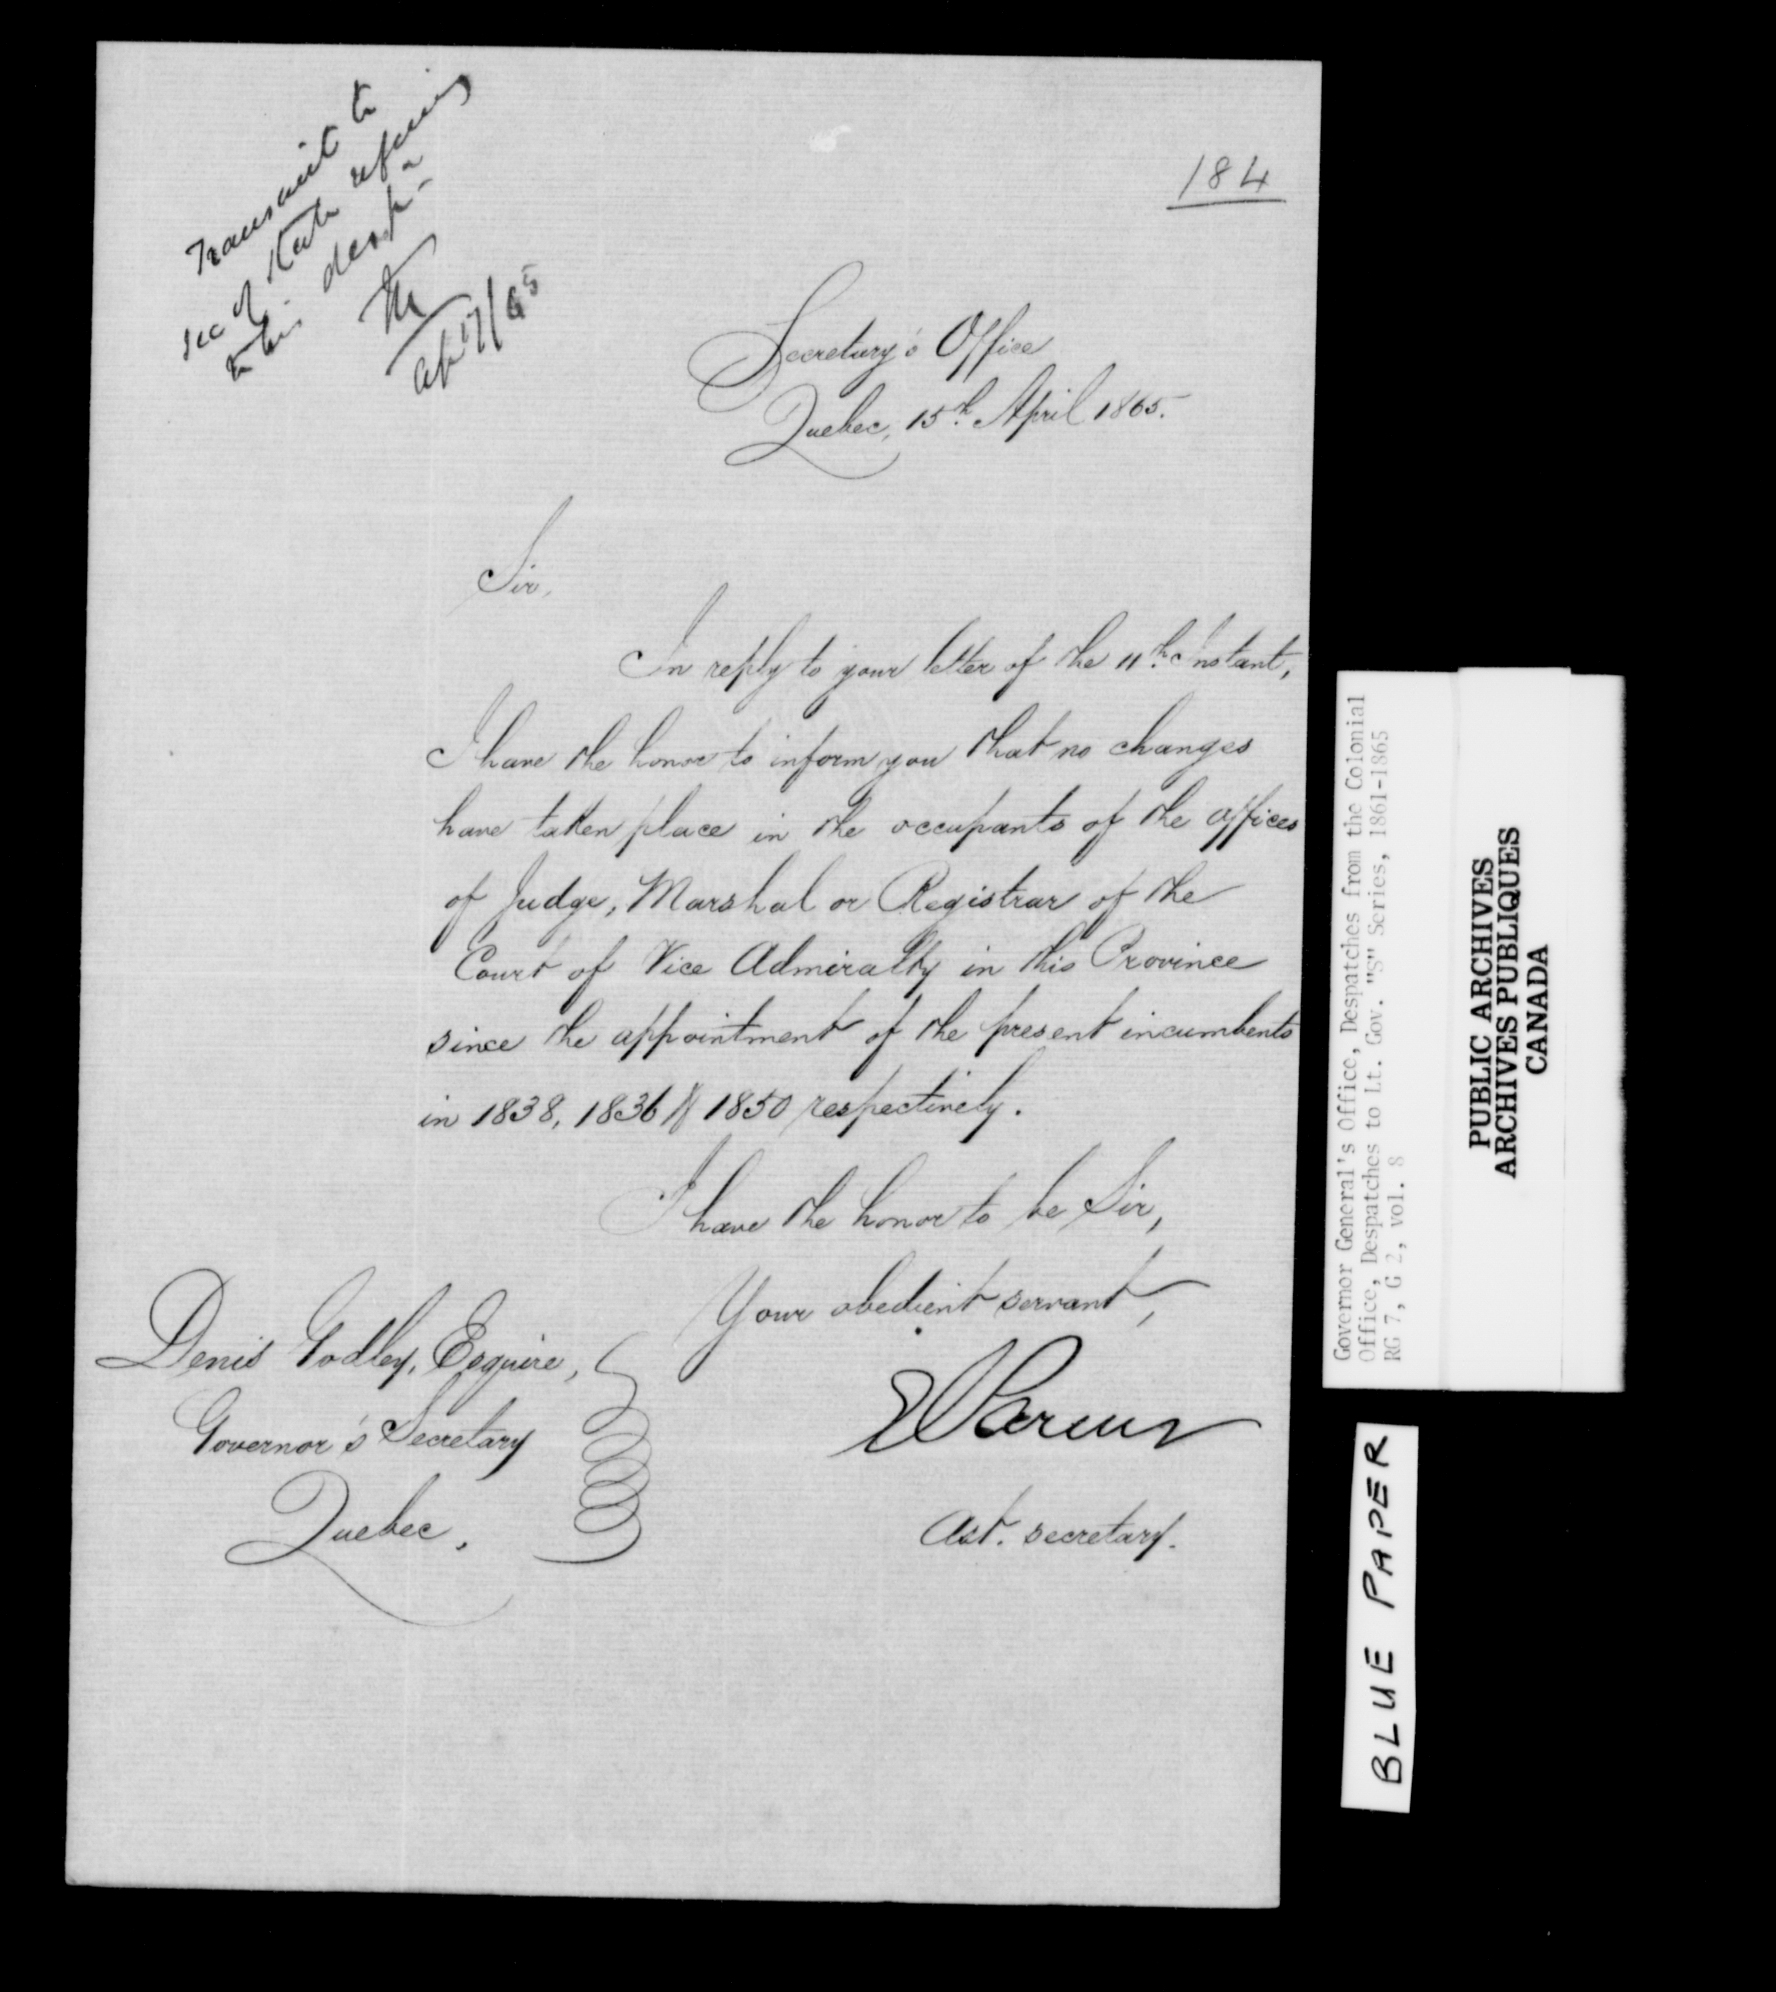 Transmit to
Sec of State refering
to his desp.
Ap 17/65
184
Secretary's Office
Quebec, 15th. April 1865.
Sir,
In reply to your letter of the 11th. Instant,
I have the honor to inform you that no changes
have taken place in the occupants of the offices
of Judge, Marshal or Registrar of the
Court of Vice Admiralty in this Province
since the appointment of the present incumbents
in 1838, 1836 & 1850 respectively.
I have the honor to be Sir,
Your obedient servant,
E Parent
Ast. secretary.
Denis Godley, Esquire,
Governor's Secretary
Quebec,
Governor General's Office, Despatches from the Colonial
Office, Despatches to Lt. Gov. "S" Series, 1861-1865
RG 7, G 2, vol. 8
PUBLIC ARCHIVES
ARCHIVES PUBLIQUES
CANADA
BLUE PAPER